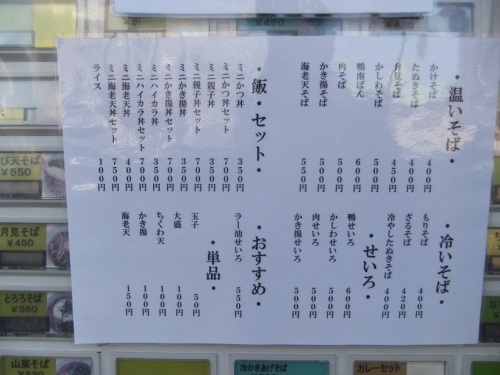 ・温いそば・
かけそば 400円
たぬきそば 400円
月見そば 450円
かしわそば 500円
鴨南ばん 600円
肉そば 500円
かき揚そば 500円
海老天そば 550円
・飯・セット・
ミニかつ丼 350円
ミニかつ丼セット 700円
ミニ親子丼 350円
ミニ親子丼セット 700円
ミニかき揚丼 350円
ミニかき揚丼セット 700円
ミニハイカラ丼 350円
ミニハイカラ丼セット 700円
ミニ海老天丼 400円
ミニ海老天丼セット 750円
ライス 100円
・冷いそば・
もりそば 400円
ざるそば 420円
冷やしたぬきそば 400円
・せいろ・
鴨せいろ 600円
かしわせいろ 500円
肉せいろ 500円
かき揚せいろ 500円
・おすすめ・
ラー油せいろ 550円
・単品・
玉子 50円
大盛 100円
ちくわ天 100円
かき揚 100円
海老天 150円
び天そば
¥550
月見そば
¥450
とろろそば
¥560
山菜そば
冷かきあげそば
カレーセット